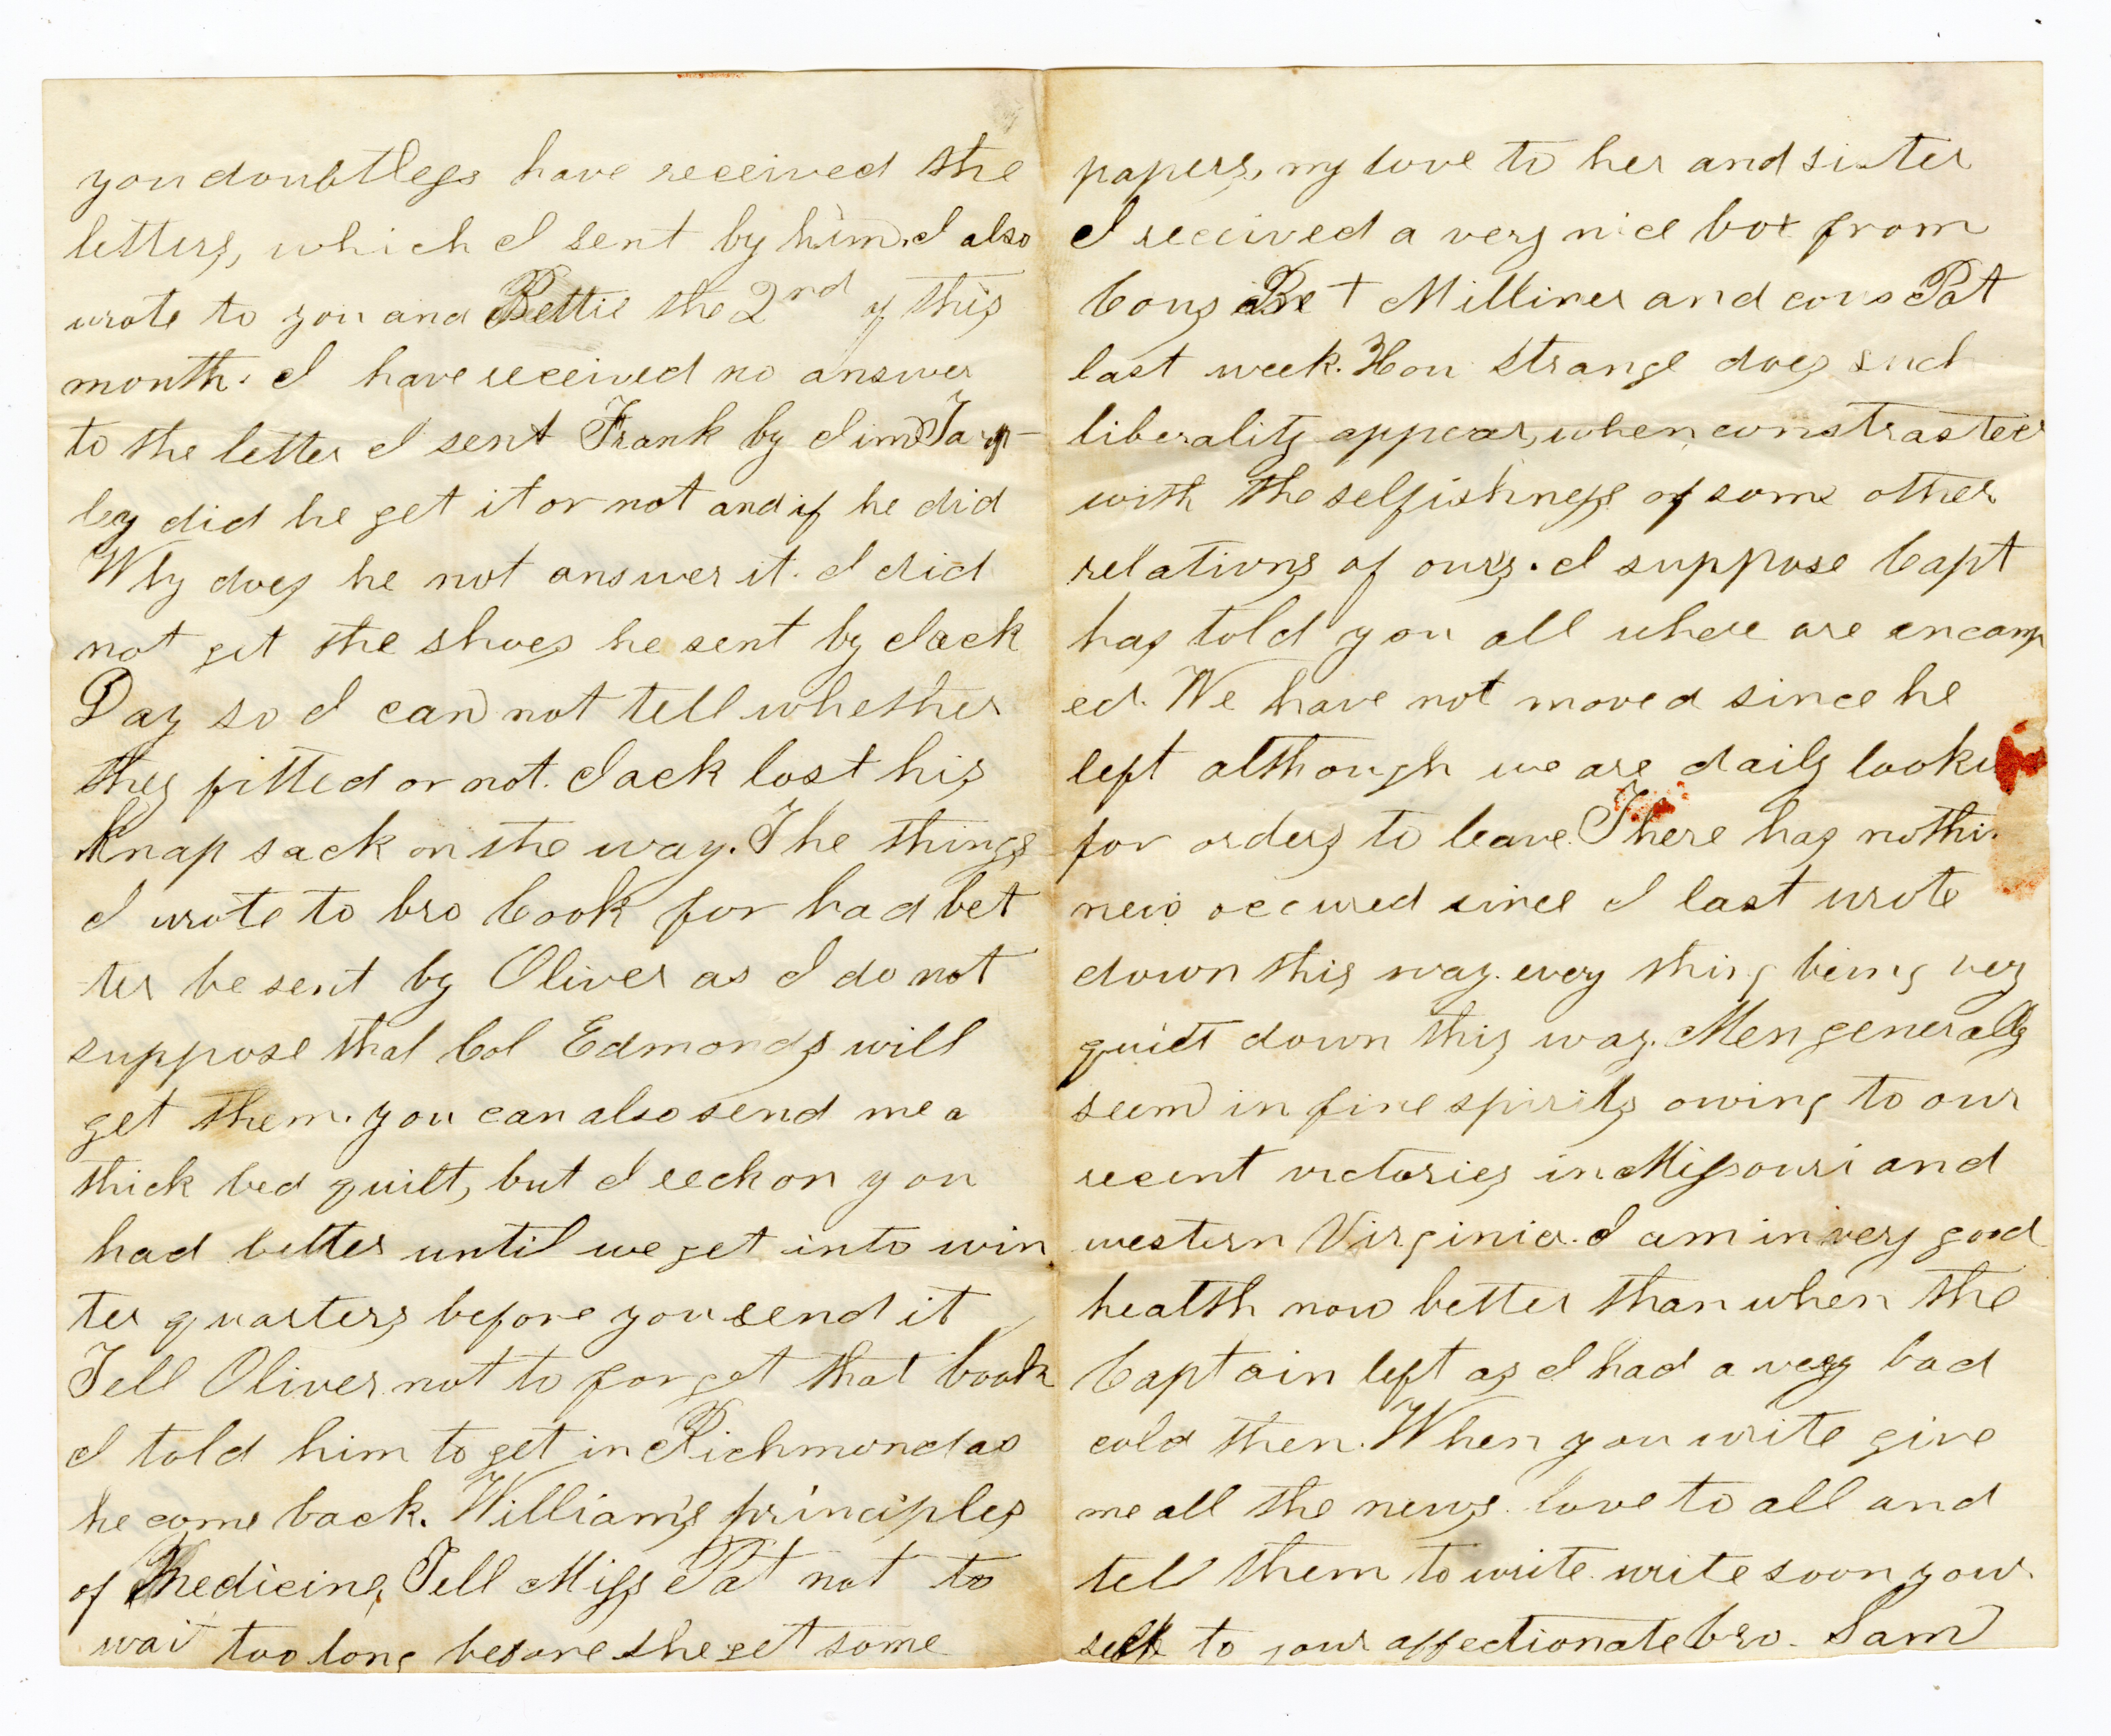 you doubtless have received the
letters, which I sent by him. I also
wrote to you and Bettie the 2nd of this
month. I have received no answer
to the letter I sent Frank by Jim Tarp-
ley did he get it or not and if he did
Why does he not answer it. I did
not get the shoes he sent by Jack
Day so I can not tell whether
they fitted or not. Jack lost his
Knap sack on the way. The things
I wrote to bro Cook for had bet
ter be sent by Oliver as I do not
suppose that Col Edmonds will
get them. you can also send me a
thick bed quilt, but I reckon you
had better until we get into win
ter quarters before you send it
Tell Oliver not to forget that book
I told him to get in Richmond as
he come back. William's principles
of Medicine, Tell Miss Pat not to
wait too long before she get some
papers, my love to her and sister
I received a very nice box from
Cous Bet + Milliner and cous Pat
last week. How strange does such
liberality appear, when constrasted
with the selfishness of some other
relations of ours. I suppose Capt
has told you all where are encamp
ed. We have not moved since he
left although we are daily looki
for orders to leave. There has nothi
new occured since I last wrote
down this way. every thing being very
quiet down this way. Men generally
seem in fine spirits owing to our
recent victories in Missouri and
western Virginia. I am in very good
health now better than when the
Captain left as I had a very bad
cold then. When you write give
me all the news. love to all and
tell them to write. write soon your
self to your affectionate bro. Sam